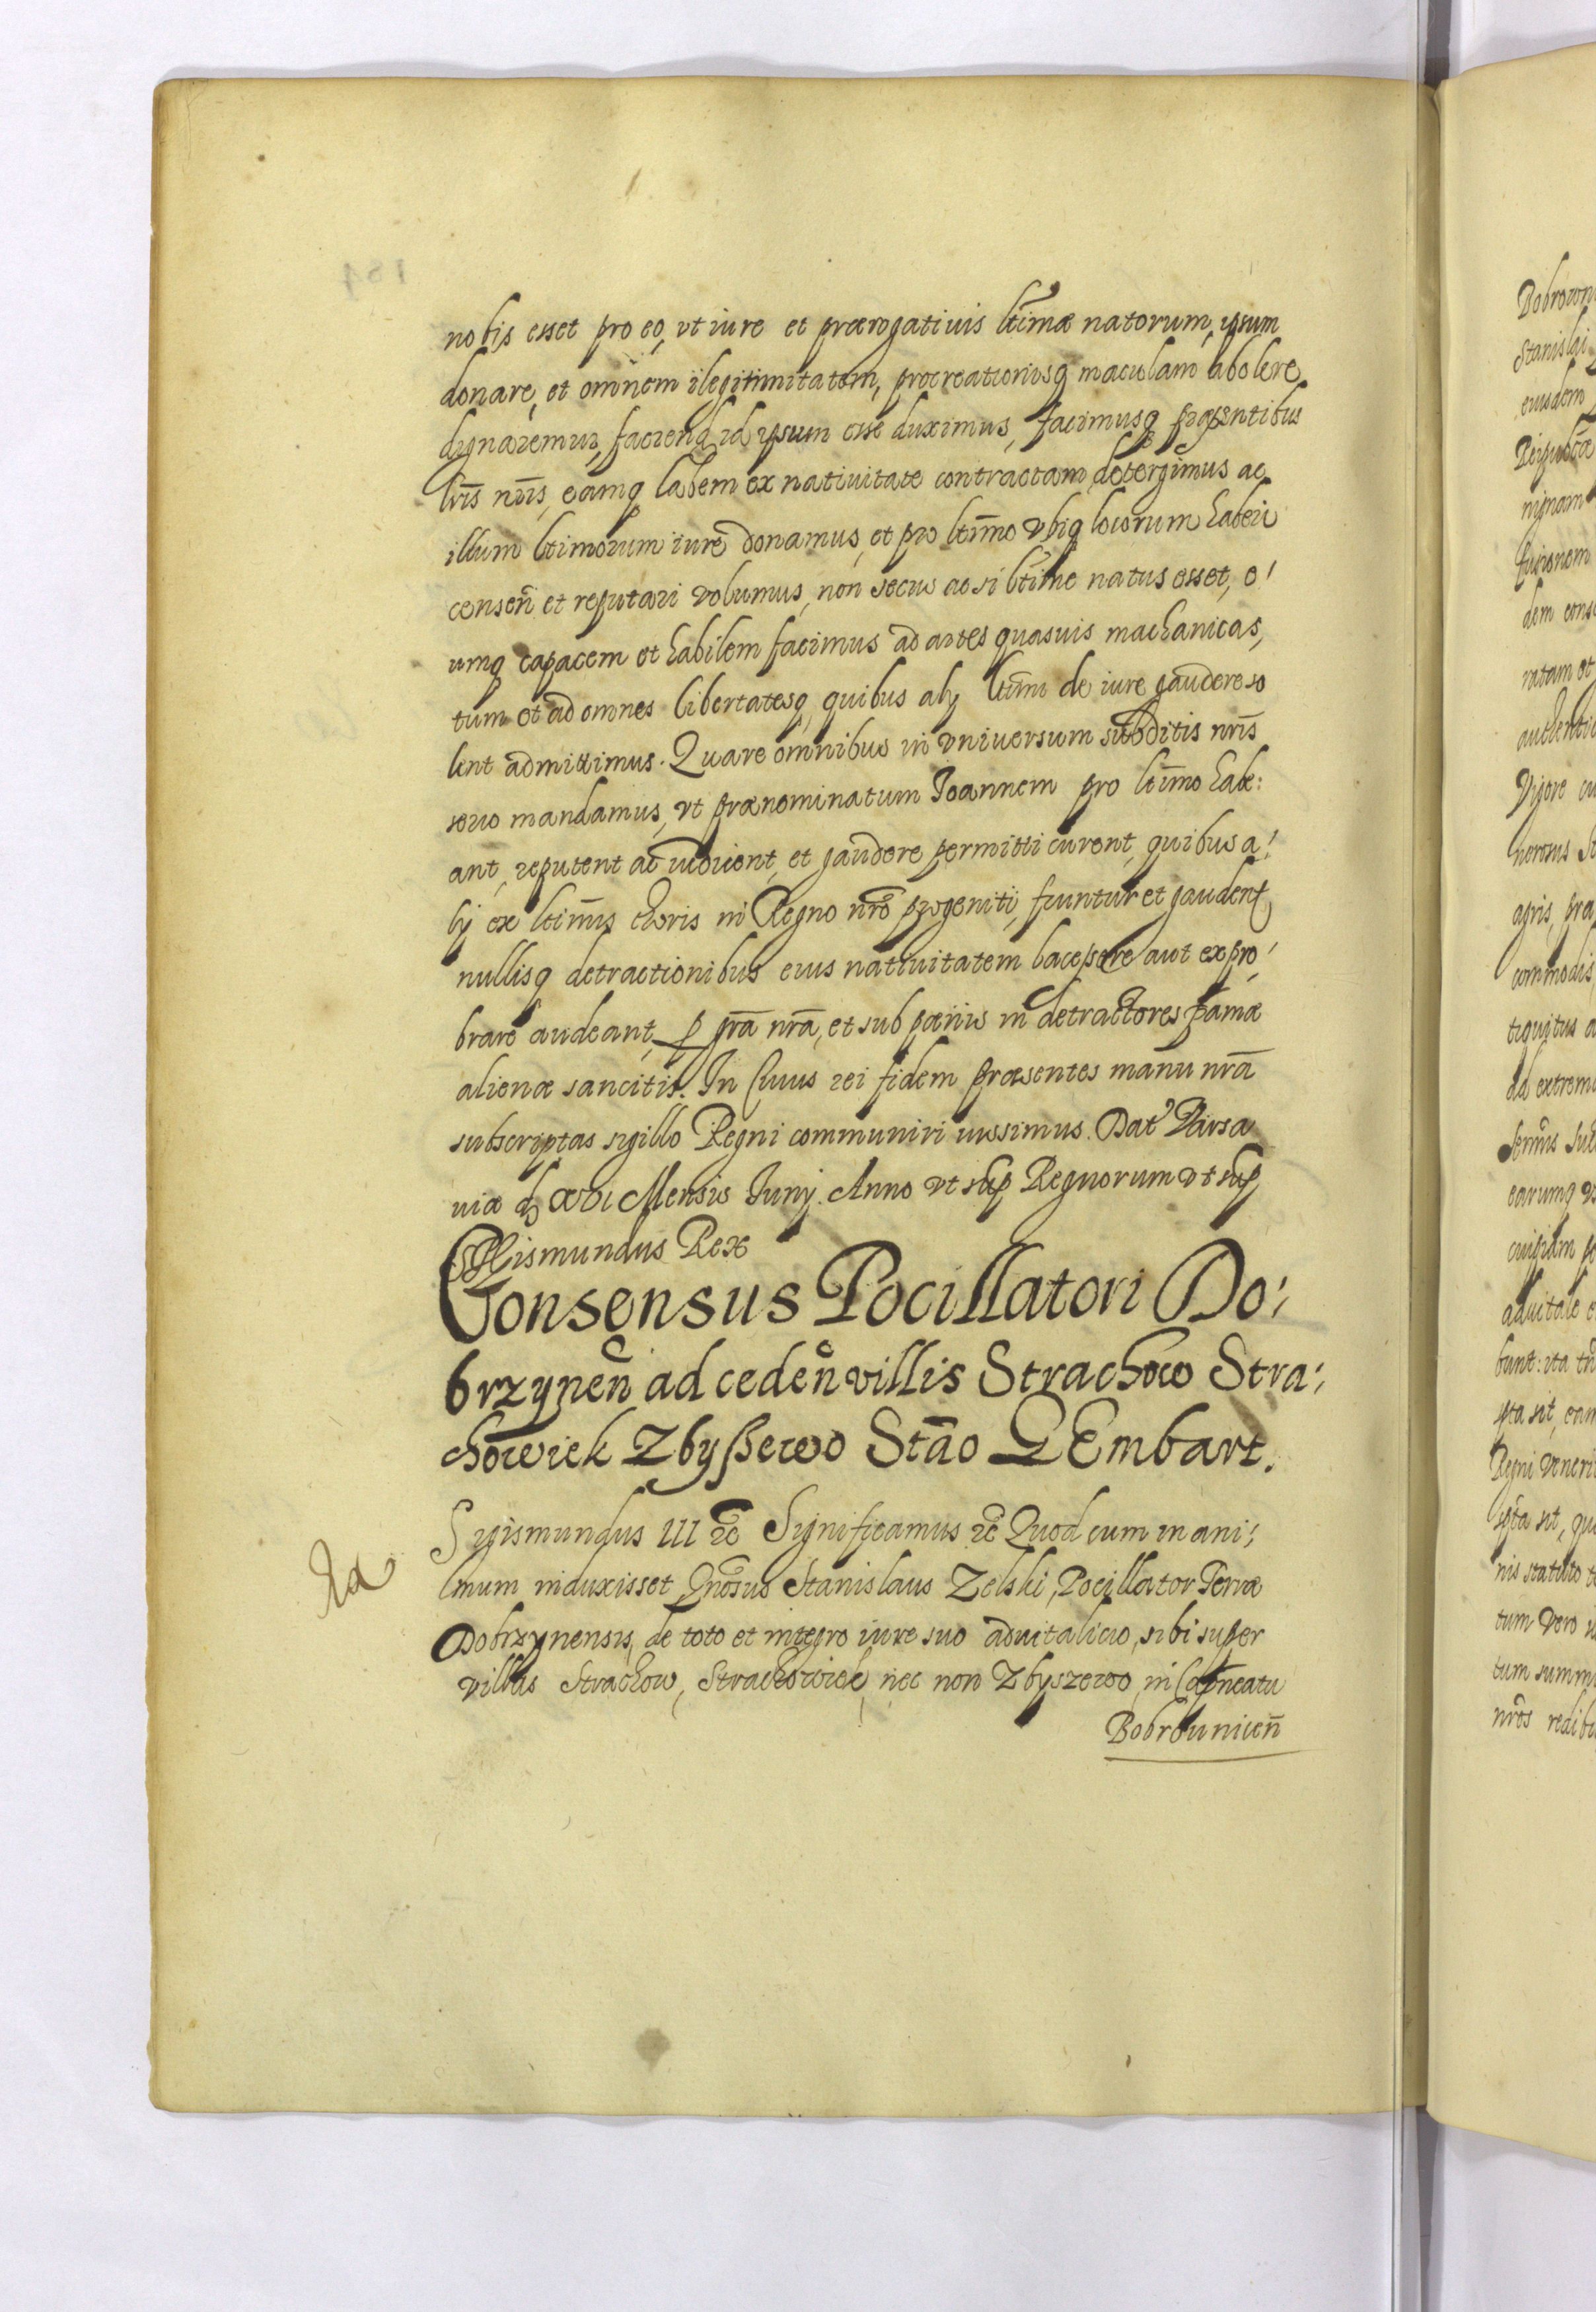 nobis esset pro eo, vt iure et prærogatiuis ltīmæ natorum, ipsum
donare, et omnem ilegitimitatem, procreationisq maculam abolere
dignaremur, faciend id ipsum esse duximus, facimusq præsentibus
lrīs nrīs, eamq labem ex natiuitate contractam detergimus ac
illum ltimorum iure donamus, et pro ltīmo vbiq locorum haberi
censeri et reputari volumus, non secus ac si ltīme natus esset, e:
umq capacem et habilem facimus ad artes quasuis mechanicas,
tum et ad omnes libertatesq, quibus alÿ ltīmi de iure gaudere so
lent admittimus. Quare omnibus in vniuersum subditis nrīs
serio mandamus, vt prænominatum Ioannem pro ltīmo habe:
ant, reputent ac iudicent, et gaudere permitti curent, quibus a:
lij ex ltīmis thoris in Regno nrō progeniti, fruuntur et gaudent
nullisq detractionibus eius natiuitatem lacessere aut expro:
brare audeant, p grā nrā, et sub pænis in detractores famæ
alienæ sancitis. In Cuius rei fidem præsentes manu nrā
subscriptas sigillo Regni communiri iussimus. Dat Varsa
uiæ d XVI Mensis Iunÿ. Anno vt sup Regnorum vt sup
Sigismundus Rex
Consensus Pocillatori Do:
brzynen ad ceden villis Strachow Stra:
chowiek Zbyßewo Stāo GEmbart.
Sigismundus III rc Significamus rc Quod cum in ani:
mum induxisset Gnōsus Stanislaus Zelski, Pocillator Terræ
Dobrzynensis, de toto et integro iure suo aduitalicio, sibi super
villas Strachow, Strachowiek, nec non Zbyszewo, in Capneatu
Bobrounicen